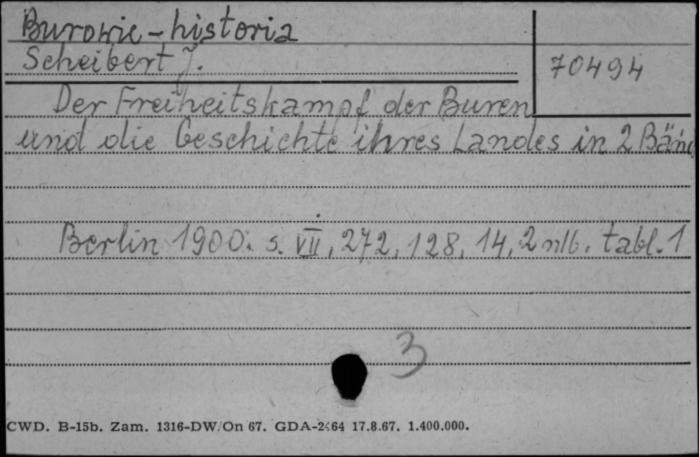 Burowie - historia
Scheibert J.
70494
Der Freiheitskampf der Buren
und die Geschichte ihres Landes in 2 Bänd
Berlin 1900. s. VII, 272, 128, 14, 2 nlb. tabl. 1
3
CWD. B-15b. Zam. 1316-DW/On 67. GDA-2464 17.8.67. 1.400.000.